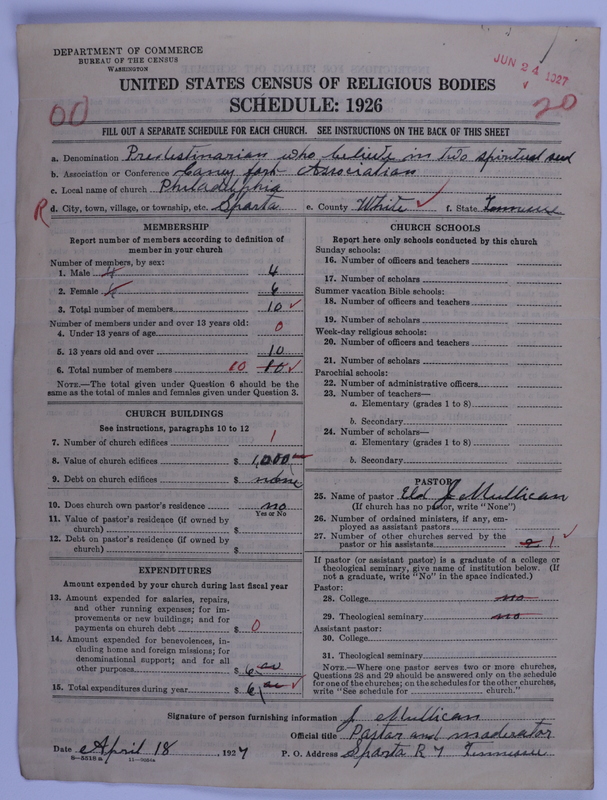 DEPARTMENT OF COMMERCE
BUREAU OF THE CENSUS
WASHINGTON
JUN 24 1927
UNITED STATES CENSUS OF RELIGIOUS BODIES
SCHEDULE: 1926
00
20
FILL OUT A SEPARATE SCHEDULE FOR EACH CHURCH. SEE INSTRUCTIONS ON THE BACK OF THIS SHEET
a. Denomination Predestinarian who believe in two spiritual seed
b. Association or Conference Caney fork Association
c. Local name of church Philadelphia
R d. City, town, village, or township, etc. Sparta e. County White f. State Tennessee
MEMBERSHIP
Report number of members according to definition of
member in your church
Number of members, by sex:
1. Male 4 4
2. Female 6
3. Total number of members 10
Number of members under and over 13 years old:
4. Under 13 years of age 0
5. 13 years old and over 10
6. Total number of members 10 10
NOTE.—The total given under Question 6 should be the
same as the total of males and females given under Question 3.
CHURCH BUILDINGS
See instructions, paragraphs 10 to 12
7. Number of church edifices 1
8. Value of church edifices $ 1,000
9. Debt on church edifices $ none
10. Does church own pastor's residence no
Yes or No
11. Value of pastor's residence (if owned by
church) $
12. Debt on pastor's residence (if owned by
church) $
EXPENDITURES
Amount expended by your church during last fiscal year
13. Amount expended for salaries, repairs,
and other running expenses; for im-
provements or new buildings; and for
payments on church debt $ 0
14. Amount expended for benevolences, in-
cluding home and foreign missions; for
denominational support; and for all
other purposes $ 6 00
15. Total expenditures during year $ 6 00
CHURCH SCHOOLS
Report here only schools conducted by this church
Sunday schools:
16. Number of officers and teachers
17. Number of scholars
Summer vacation Bible schools:
18. Number of officers and teachers
19. Number of scholars
Week-day religious schools:
20. Number of officers and teachers
21. Number of scholars
Parochial schools:
22. Number of administrative officers
23. Number of teachers—
a. Elementary (grades 1 to 8)
b. Secondary
24. Number of scholars—
a. Elementary (grades 1 to 8)
b. Secondary
PASTOR
25. Name of pastor Eld J Mullican
(If church has no pastor, write "None")
26. Number of ordained ministers, if any, em-
ployed as assistant pastors
27. Number of other churches served by the
pastor or his assistants 2 1
If pastor (or assistant pastor) is a graduate of a college or
theological seminary, give name of institution below. (If
not a graduate, write "No" in the space indicated.)
Pastor:
28. College no
29. Theological seminary no
Assistant pastor:
30. College
31. Theological seminary
NOTE.—Where one pastor serves two or more churches,
Questions 28 and 29 should be answered only on the schedule
for one of the churches; on the schedules for the other churches,
write "See schedule for church."
Signature of person furnishing information J Mullican
Official title Pastor and moderator
Date April 18, 1927 P. O. Address Sparta R 7 Tennessee